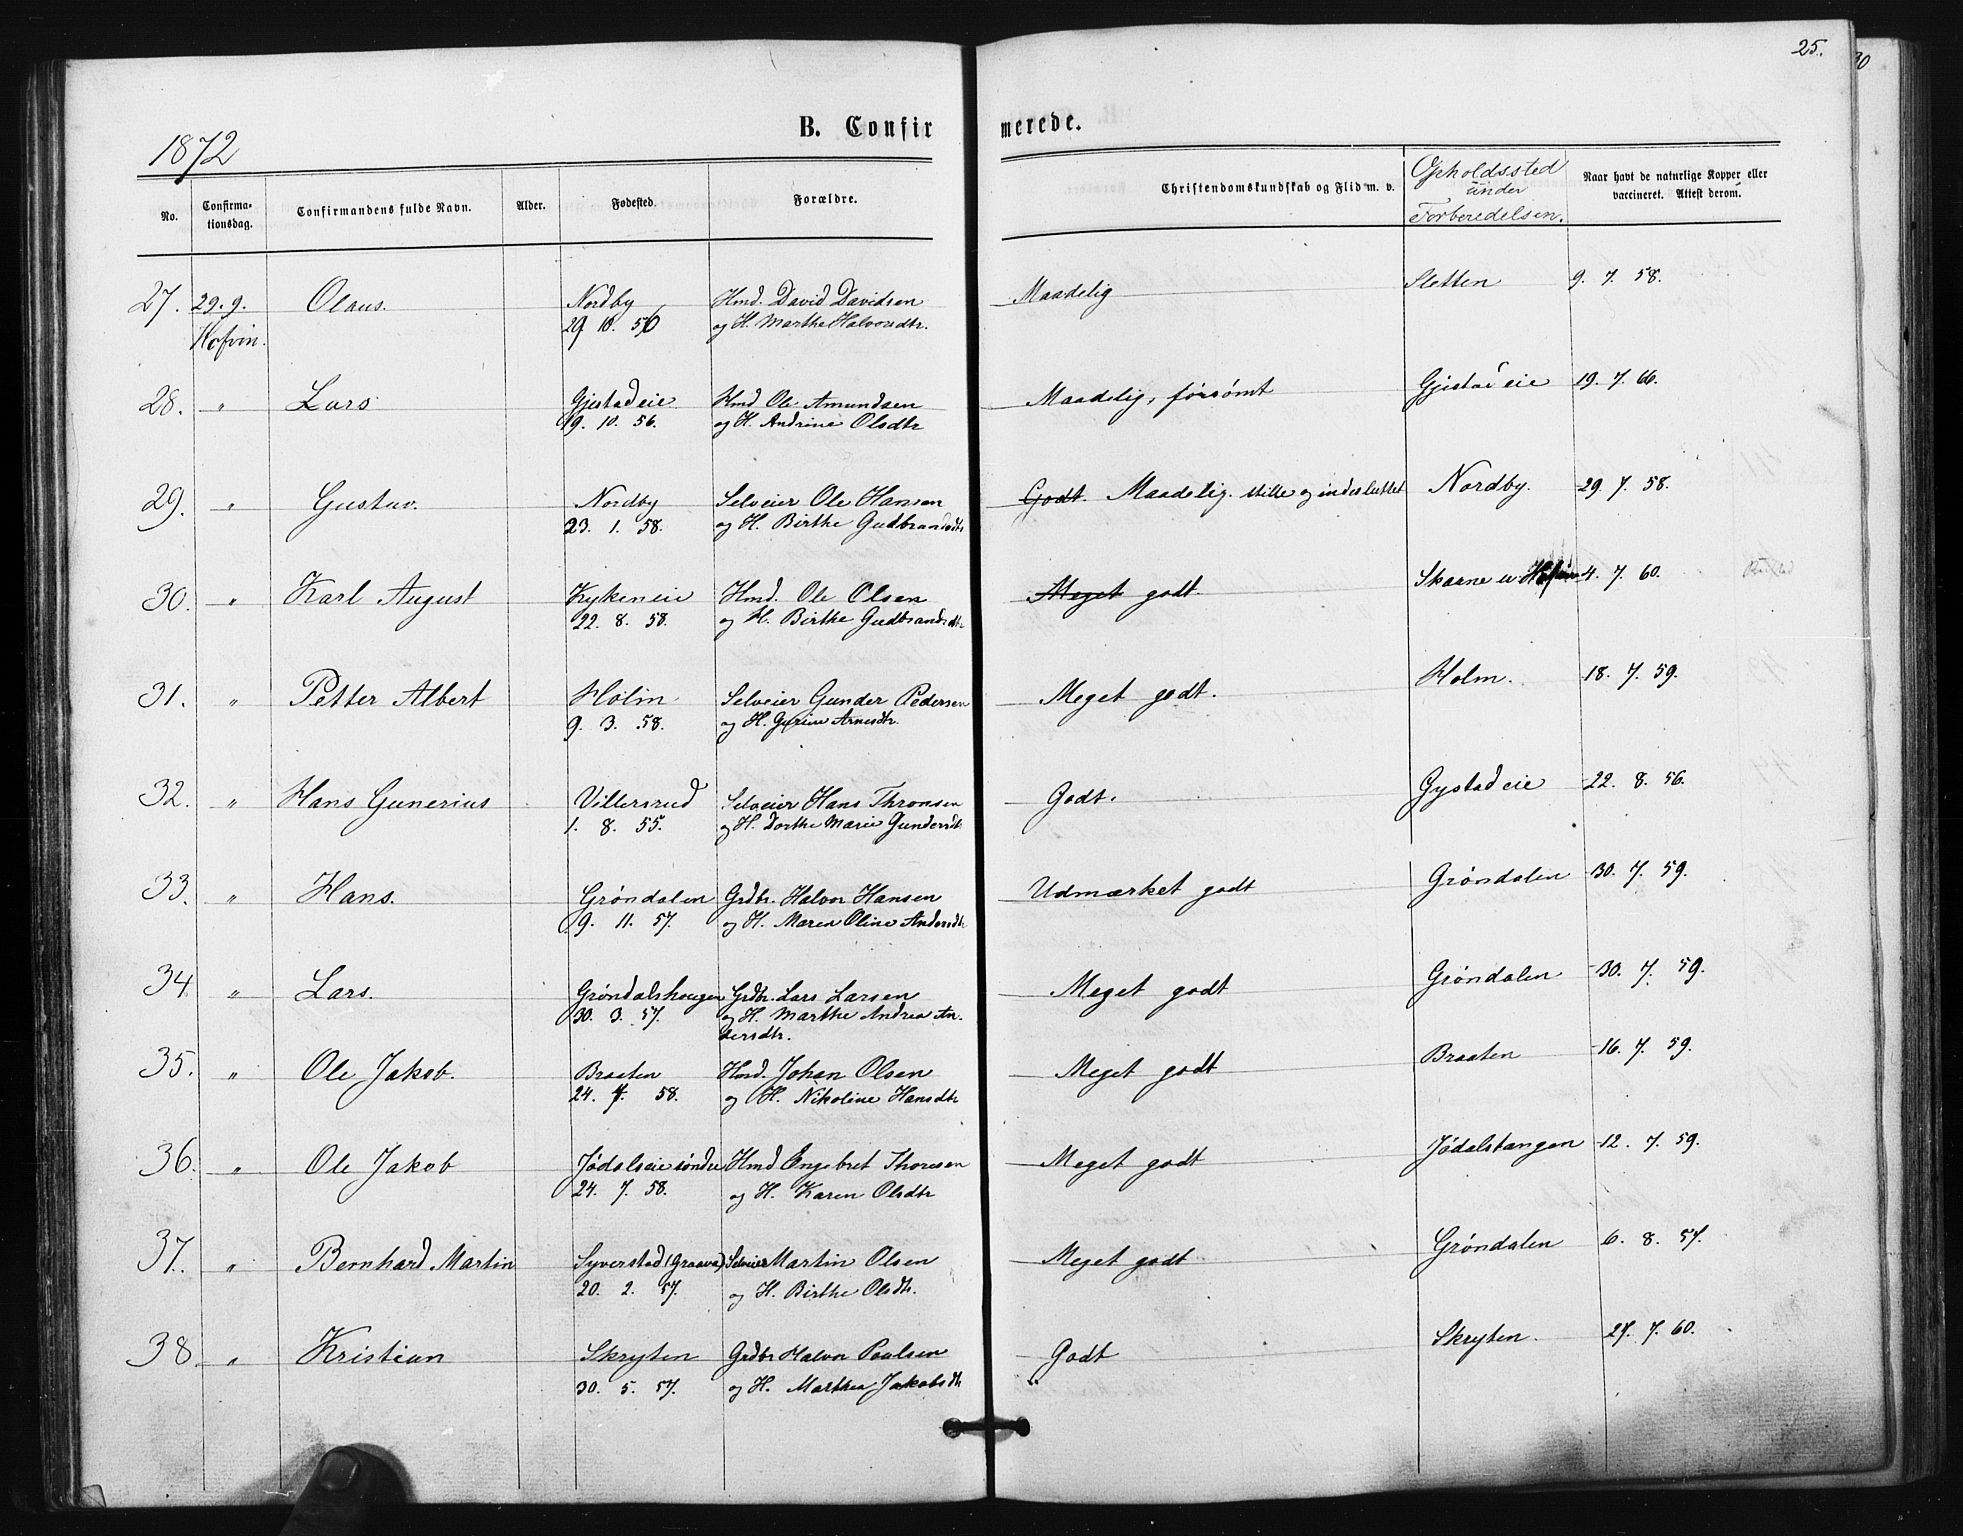 25.
30
1872
B. Confirmerede.
No. Confirma-tionsdag. Confirmandens fulde Navn. Alder. Fødested. Forældre. Christendomskundskab og Flid m. v. Opholdssted under Forberedelsen. Naar havt de naturlige Kopper eller vaccineret. Attest derom.
27. 29. 9. Olaus. Nordby Hmd. David Davidsen Maadelig Sletten 9. 7. 58.
Hofvin. 29. 10. 56 og H. Marthe Halvorsdtr.
28. " Lars Gjestadeie Hmd Ole Amundsen Maadelig, forsømt Gjestadeie 19. 7. 66.
19. 10. 56. og H. Andrine Olsdtr
29. " Gustav. Nordby Selveier Ole Hansen Godt. Maadelig. stille og indesluttet Nordby. 29 7. 58.
23. 1. 58. og H. Birthe Gudbrandsdtr
30. " Karl August Kykeneie Hmd. Ole Olsen Meget godt. Skarne u Hofvin 4. 7. 60.
22. 8. 58. og H. Birthe Gudbrandsdtr
31. " Petter Albert Holm Selveier Gunder Pedersen Meget godt. Holm. 18. 7. 59.
9. 3. 58. og H. Gurine Arnesdtr.
32. " Hans Gunerius Villersrud Selveier Hans Thronsen Godt. Gystadeie 22. 8. 56.
1. 8. 55. og H. Dorthe Marie Gundersdt
33. " Hans. Grøndalen Grdbr. Halvor Hansen Udmærket godt Grøndalen 30. 7. 59.
9. 11. 57. og H. Maren Oline Andersdtr
34 " Lars. Grøndalshougen Grdbr. Lars Larsen Meget godt Grøndalen 30. 7. 59.
30. 3. 57. og H. Marthe Andrea An-
dersdtr.
35. " Ole Jakob. Braaten Hmd. Johan Olsen Meget godt Braaten 16. 7. 59.
24. 4. 58. og H. Nikoline Hansdtr
36. " Ole Jakob Jødalseie søndre Hmd Engebret Thoresen Meget godt Jødalstangen 12. 7. 59.
24. 7. 58. og H. Karen Olsdtr
37. " Bernhard Martin Syverstad (Graava) Selveier Martin Olsen Meget godt Grøndalen 6. 8. 57.
20. 2. 57. og H. Birthe Olsdtr.
38 " Kristian Skryten Grdbr Halvor Paulsen Godt Skryten. 27. 7. 60.
30. 5. 57. og H. Marthea Jakobsdtr